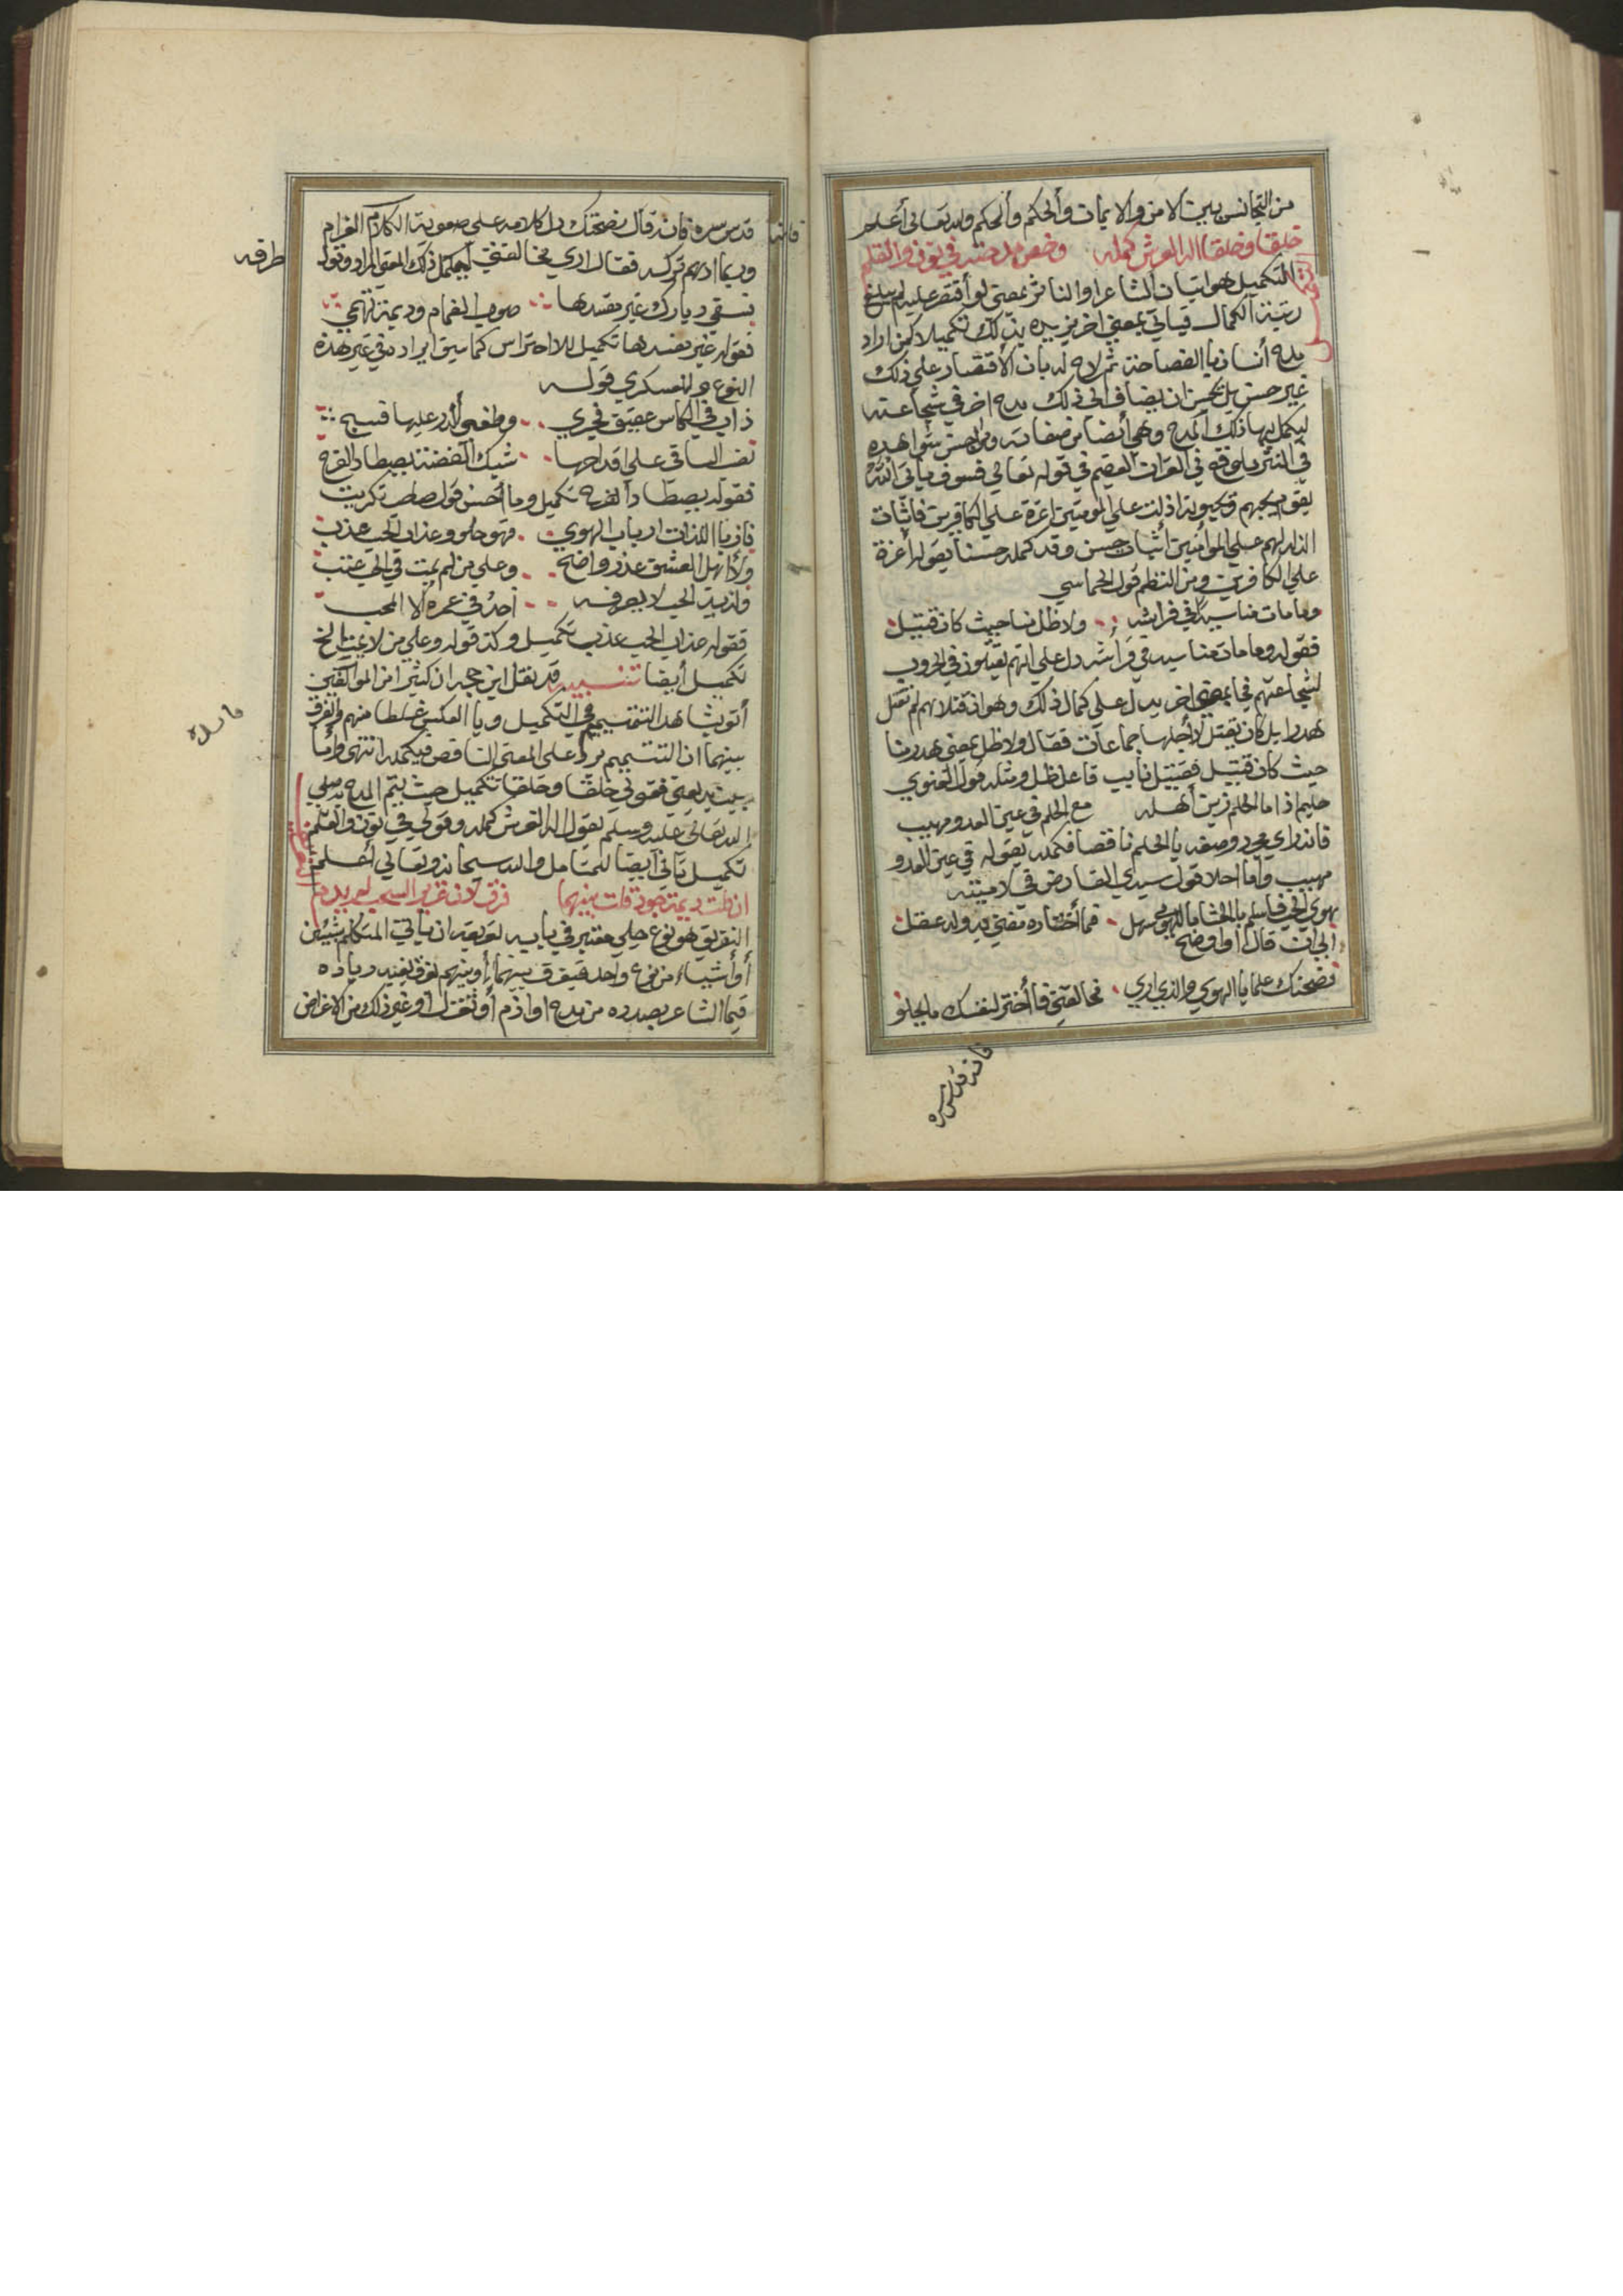 من التجانس بين الامن والايمان وألحكم وألحكم والله تعالى أعلم
خلقا وخلقا اله العرش كمله وخص مدحته في نون والقلم
التكميل هو اتيان الشاعر او الناثر بمعنى لو أقتصر عليه لم يبلغ
رتبة الكمال فيأتي بمعنى اخر يزيده بذلك تكميلا كمن اراد
مدح أنسان بالفصاحة ثم لاح له بان الأقتصار على ذلك
غير حسن بل يحسن ان يضاف الى ذلك مدح اخر في شجاعته
ليكمل بها ذلك المدح وهي أيضا من صفاته ومن احسن شواهده
في النثر ما وقع في القران العظيم في قوله تعالي فسوف يأتي الله
بقوم يحبهم ويحبونه اذلة علي المومنين اعزة علي الكافرين فاثبات
الذل لهم علي الموأمنين أثبات حسن وقد كمله حسنا بقوله أعزة
علي الكافرين ومن النظم قول الحماسي
وما مات منا سيد في فراشه ولا ظل منا حيث كان قتيل
فقوله وما مات منا سيد في فراشه دل علي انهم يقتلون في الحروب
لشجاعتهم فجا بمعنى اخر يدل علي كمال ذلك وهو ان قتلاهم لم تقتل
هدرا بل كان يقتل لأجلها جماعات فقال ولا ظل بمعني هدر منا
حيث كان قتيل فقتيل نايب فاعل ظل ومثله قول الغنوي
حليم اذا ما الحلم زين أهله مع الحلم في عين العدو مهيب
فانه راي مجرد وصفه بالحلم ناقصا فكمله بقوله في عين العدو
مهيب وأما احلا قول سيدي الفارض في لاميته
هوي الحب فاسلم بالحشا ما الهوى سهل فما أختاره مضني به وله عقل
الي ان قال او اوضح
نصحتك علما بالهوي والذي اري مخالفتي فاأختر لنفسك ما يحلو
فانه قدس سره
قدس سره فانه قال نصحتك دل كلامه علي صعوبة الكلام الغرام
وربما أوهم تركه فقال اري مخالفتي ليكمل ذلك المعنى المراد وقول
طرفه
فسقي ديارك غير مفسدها صوب الغمام وديمة تهمي
فقوله غير مفسدها تكميل للاحتراس كما سبق ايراده في غير هذه
النوع وللعسكري قوله
ذاب في الكاس عقيق فجري وطفي ألدر عليها فسبح
نصب الساقي علي اقداحها شبك ألفضة يصطاد الفرح
فقوله يصطاد الفرح تكميل وما أحسن قول
فاز باللذات ارباب الهوي فهو حلو وعذاب الحب عذب
ولأهل العشق عذر واضح وعلي من لم يمت في الحب عتب
ولذيذ الحب لا يعرفه أحد في عمره ألا المحب
فقوله عذاب الحب عذب تكميل وكذ قوله وعلي من لا يمت الخ
تكميل أيضا تنبيه قد نقل ابن حجه ان كثيرا من الموألفين
أتوا بشاهد التتميم في التكميل وباالعكس غلطا منهم والفرق
بينهما ان التتميم يرد علي المعنى الناقص فيكمله انتهى وأما
بيت بديعيتي فقولي خلقا وخلقا تكميل حيث يتم المدح به صلي
الله تعالى عليه وسلم بقول اله العرش كمله وقولي في نون والقلم
تكميل ثاني أيضا للمتامل والله سبحانه وتعالي أعلم
ان قلت ديمة جود قلت بينهما فرق لان غزير السحب لم يدم
التفريق هو نوع جلي معتبر في بابه تعريفه ان ياتي المتكلم بشيئين
أو أشياء من نوع واحد فيفرق بينهما أو بينهم بفرق يفيد زياده
فيما الشاعر بصدده من مدح او اذم أو تغزل او غير ذلك من الاغراض